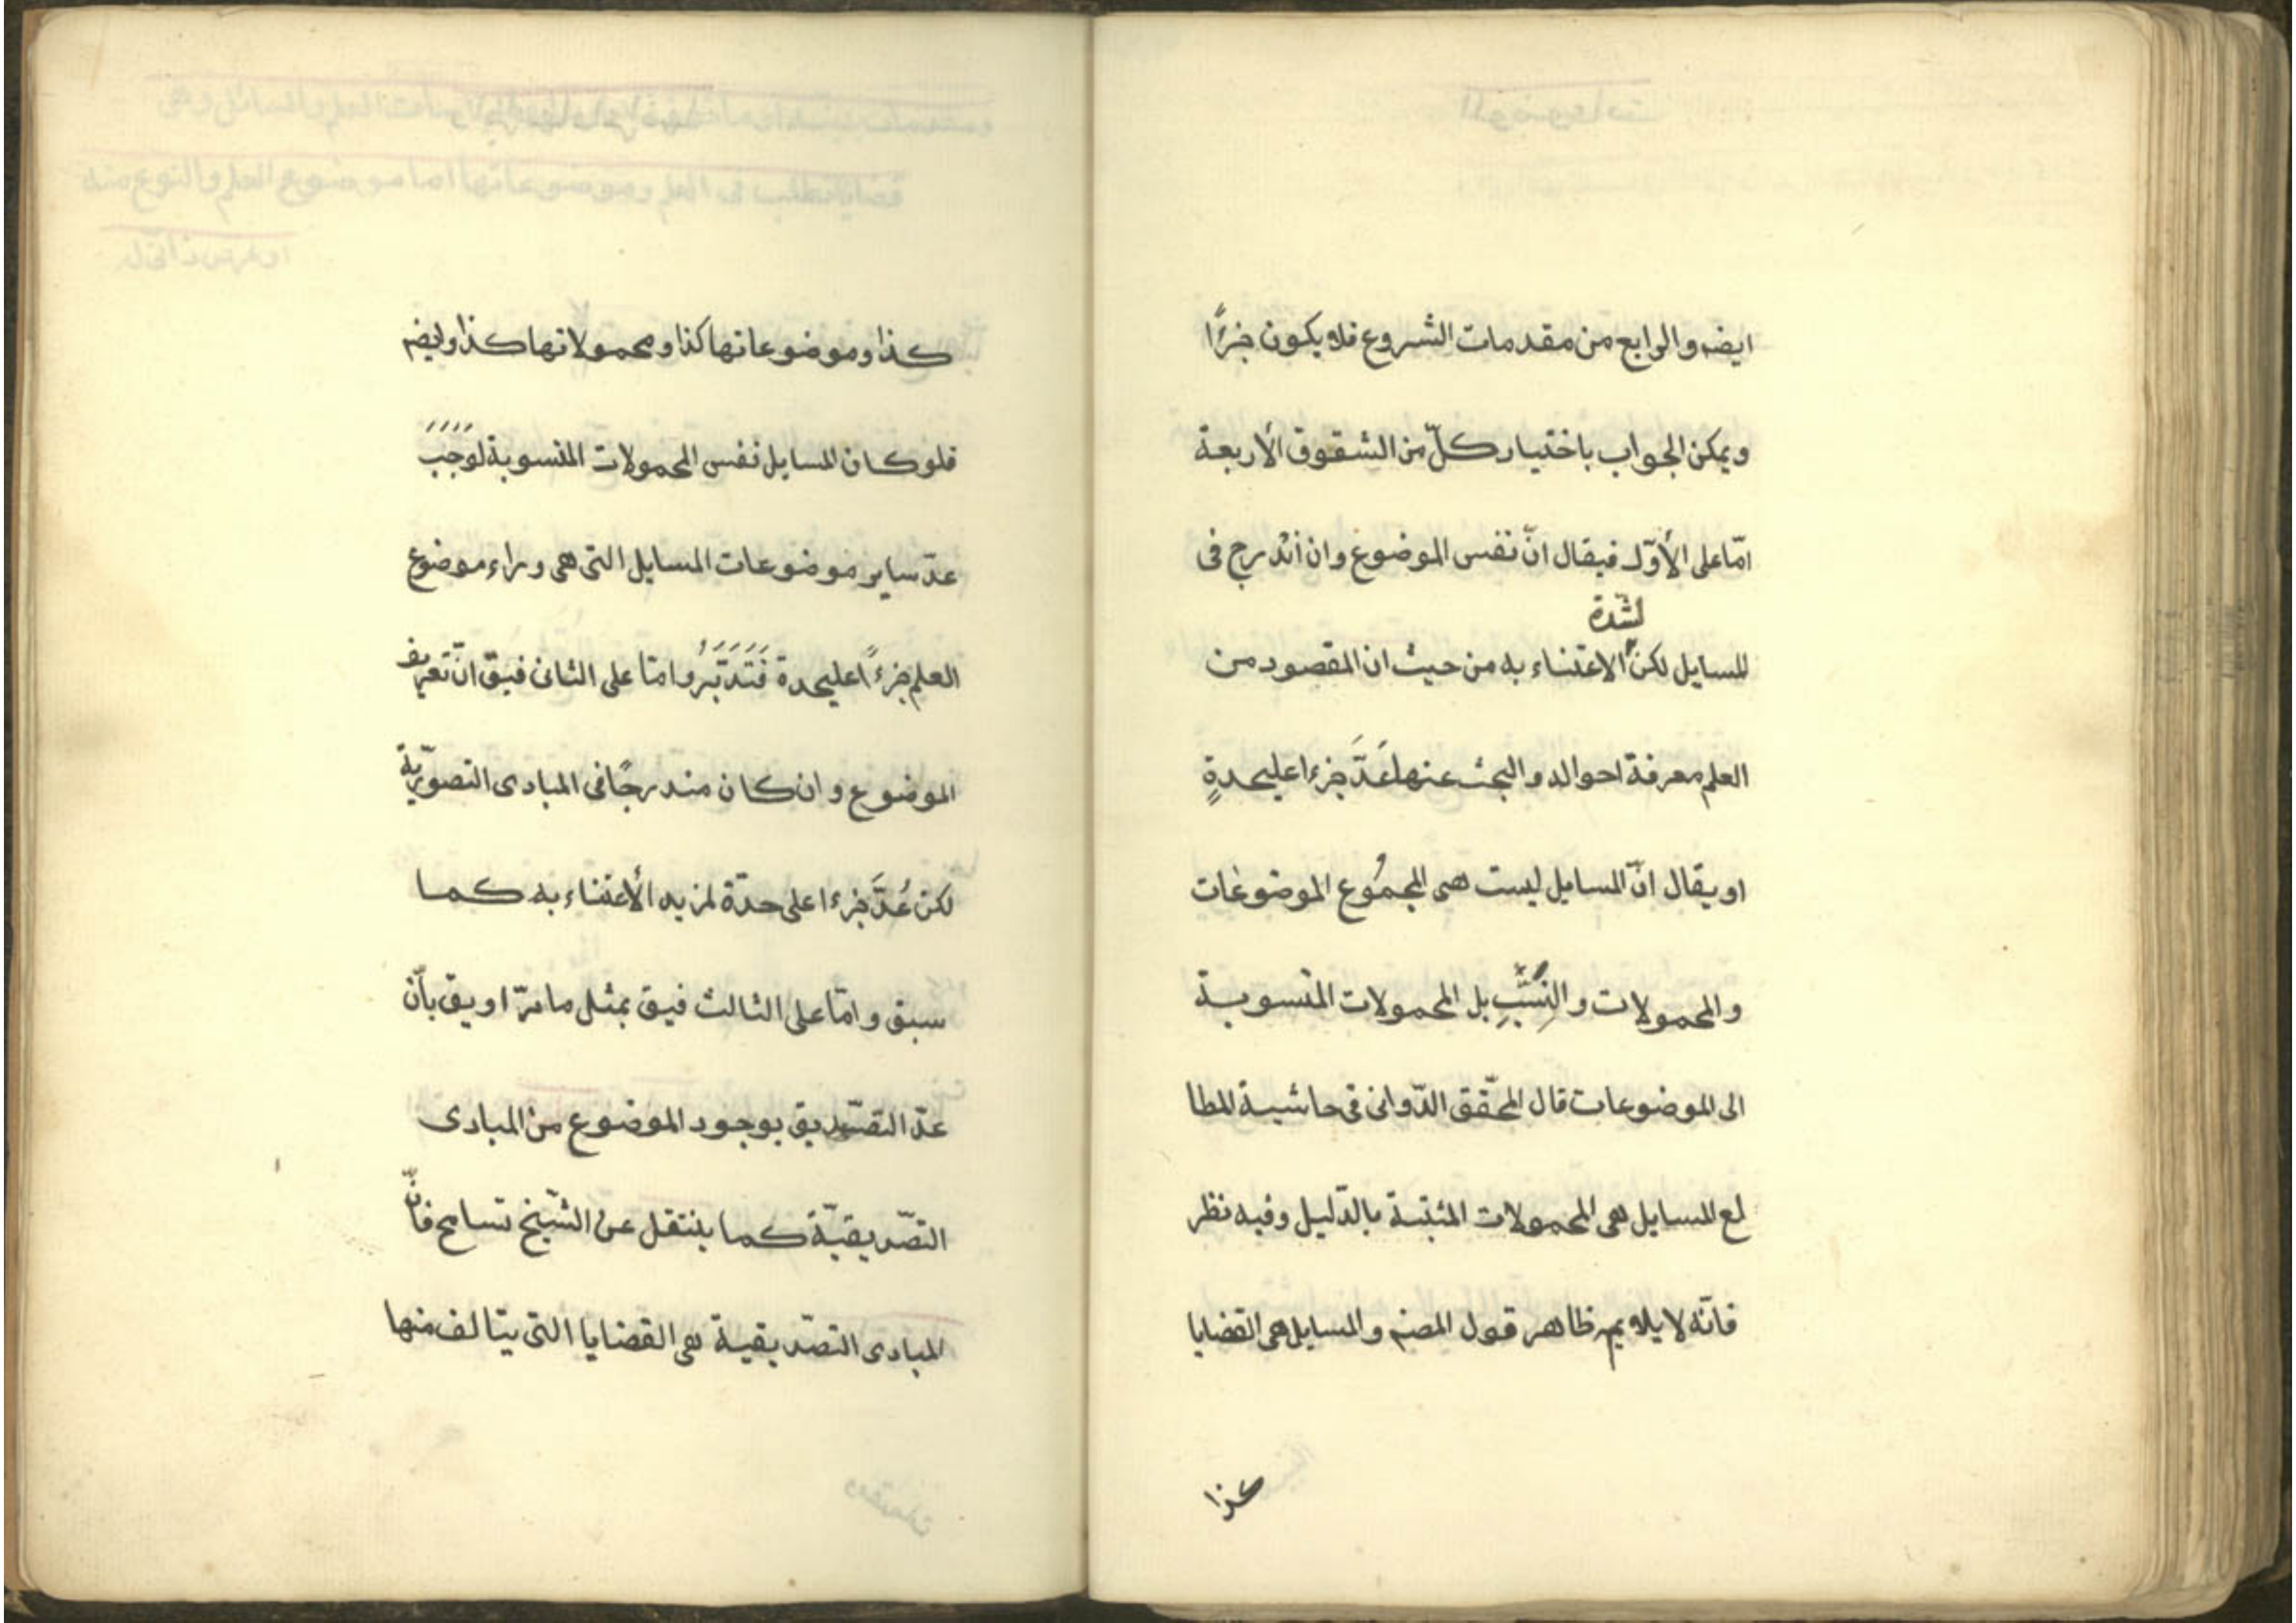 ايضه والرابع من مقدمات الشروع فلا يكون جزءًا
ويمكن الجواب باختيار كلّ من الشقوق الأربعة
امّا على الأوّل فيقال انّ نفس الموضوع وان اندرج فى
لشدّة
المسايل لكن الاعتناء به من حيث ان المقصود من
العلم معرفة احواله والبحث عنها عَدَّ جزءا عليحدةٍ
او يقال انّ المسايل ليست هى المجمُوع الموضوعات
والمحمولات والنِسَبِ بل المحمولات المنسوبة
الى الموضوعات قال المحقّق الدّوانى فى حاشية المطا
لع المسايل هى المحمولات المثبتة بالدّليل وفيه نظر
فانّه لا يلايم ظاهر قول المصنم والمسايل هى القضايا
كذا
كذا وموضوعاتها كذا ومحمولاتها كذا وايضه
فلو كان المسايل نفس المحمولات المنسوبة لوَجَبَ
عدّ ساير موضوعات المسايل التى هى وراء موضوع
العلم جزءًا عليحدة فَتَدَبَّرُ وامّا على الثانى فيقّ انّ تعريف
الموضوع وان كان مندرجًا فى المبادى التصوّريّة
لكن عُدَّ جزءا على حدّة لمزيد الأعتناء به كما
سبق وامّا على الثالث فيق بمثل ما مرّ او يق بأنّ
عدّ التصّديق بوجود الموضوع من المبادى
التصّديقيّة كما ينتقل عن الشّيخ تسامح فانّ
المبادى التصّديقية هى القضايا التى يتالف منها